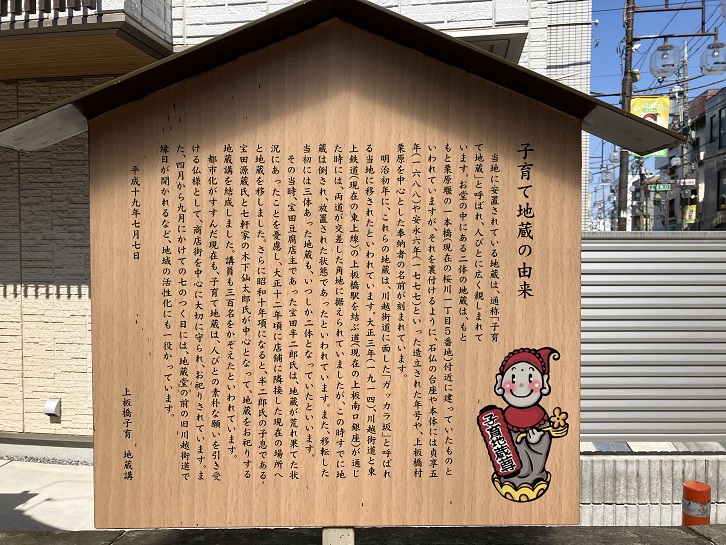 子育て地蔵の由来
当地に安置されている地蔵は、通称「子育
て地蔵」と呼ばれ、人びとに広く親しまれて
います。お堂の中にある二体の地蔵は、もと
もと栗原堰の一本橋(現在の桜川一丁目5番地)付近に建っていたものと
いわれていますが、それを裏付けるように、石仏の台座や本体には貞享五
年(一六八八)や安永六年(一七七七)といった造立された年号や、上板橋村
栗原を中心とした奉納者の名前が刻まれています。
明治初年に、これらの地蔵は、川越街道に面した「ガッカラ坂」と呼ばれ
る当地に移されたといわれています。大正三年(一九一四)、川越街道と東
上鉄道(現在の東上線)の上板橋駅を結ぶ道(現在の上板南口銀座)が通じ
た時には、両道が交差した角地に据えられていましたが、この時すでに地
蔵は倒され、放置された状態であったといわれています。また、移転した
当初には三体あった地蔵も、いつしか二体となっていたといいます。
その当時、宝田豆腐店主であった宝田半二郎氏は、地蔵が荒れ果てた状
況にあったことを憂慮し、大正十二年頃に店舗に隣接した現在の場所へ
と地蔵を移しました。さらに昭和十年頃になると、半二郎氏の子息である、
宝田源蔵氏と七軒家の木下仙太郎氏が中心となって、地蔵をお祀りする
地蔵講を結成しました。講員も三百名をかぞえたといわれています。
都市化がすすんだ現在も、子育て地蔵は、人びとの素朴な願いを引き受
ける仏様として、商店街を中心に大切に守られ、お祀りされています。ま
た、四月から九月にかけての七のつく日には、地蔵堂の前の旧川越街道で
縁日が開かれるなど、地域の活性化にも一役かっています。
平成十九年七月七日
上板橋子育・地蔵講
子育地蔵尊